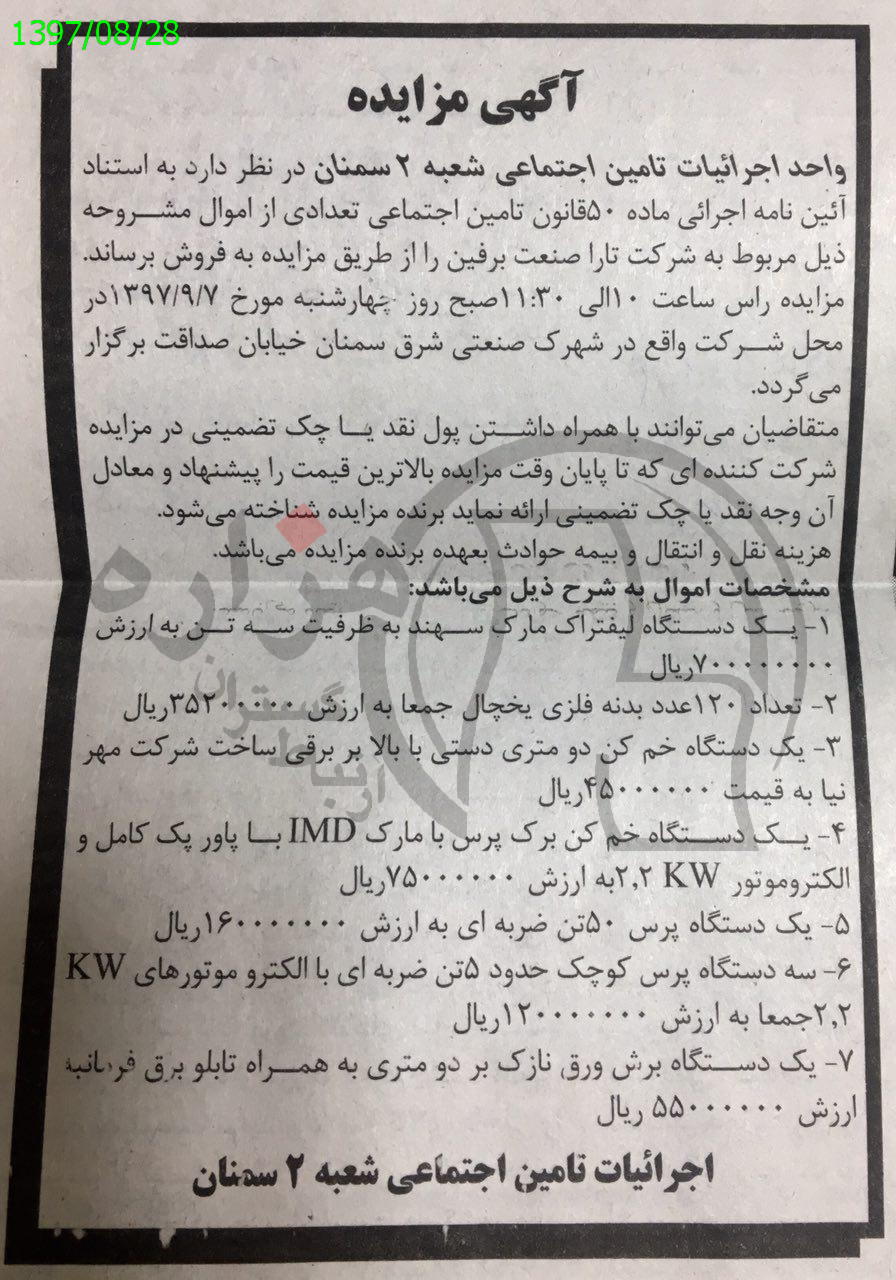 1397/08/28
آگهی مزایده
واحد اجرائیات تامین اجتماعی شعبه ۲ سمنان در نظر دارد به استناد
آئین نامه اجرائی ماده ۵۰قانون تامین اجتماعی تعدادی از اموال مشروحه
ذیل مربوط به شرکت تارا صنعت برفین را از طریق مزایده به فروش برساند.
مزایده راس ساعت ۱۰الی ۱۱:۳۰صبح روز چهارشنبه مورخ ۱۳۹۷/۹/۷در
محل شرکت واقع در شهرک صنعتی شرق سمنان خیابان صداقت برگزار
می‌گردد.
متقاضیان می‌توانند با همراه داشتن پول نقد یا چک تضمینی در مزایده
شرکت کننده ای که تا پایان وقت مزایده بالاترین قیمت را پیشنهاد و معادل
آن وجه نقد یا چک تضمینی ارائه نماید برنده مزایده شناخته می‌شود.
هزینه نقل و انتقال و بیمه حوادث بعهده برنده مزایده می‌باشد.
مشخصات اموال به شرح ذیل می‌باشد:
۱- یک دستگاه لیفتراک مارک سهند به ظرفیت سه تن به ارزش
۷۰۰۰۰۰۰۰۰ریال
۲- تعداد ۱۲۰عدد بدنه فلزی یخچال جمعا به ارزش ۳۵۲۰۰۰۰۰ریال
۳- یک دستگاه خم کن دو متری دستی با بالا بر برقی ساخت شرکت مهر
نیا به قیمت ۴۵۰۰۰۰۰۰ریال
۴- یک دستگاه خم کن برک پرس با مارک IMD با پاور پک کامل و
الکتروموتور ۲,۲ KWبه ارزش ۷۵۰۰۰۰۰۰ریال
۵- یک دستگاه پرس ۵۰تن ضربه ای به ارزش ۱۶۰۰۰۰۰۰۰ریال
۶- سه دستگاه پرس کوچک حدود ۵تن ضربه ای با الکترو موتورهای KW
۲,۲جمعا به ارزش ۱۲۰۰۰۰۰۰۰ریال
۷- یک دستگاه برش ورق نازک بر دو متری به همراه تابلو برق فرمانبه
ارزش ۵۵۰۰۰۰۰۰ ریال
اجرائیات تامین اجتماعی شعبه ۲ سمنان
هزاره
گستران